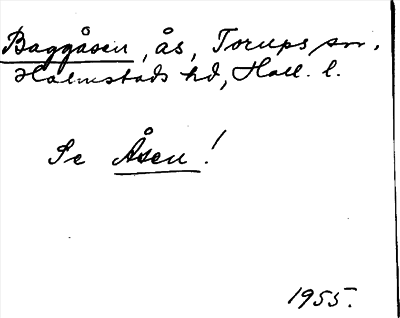 Baggåsen, ås, Torups sn.
Halmstads hd, Hall. l.
Se Åsen!
1955.